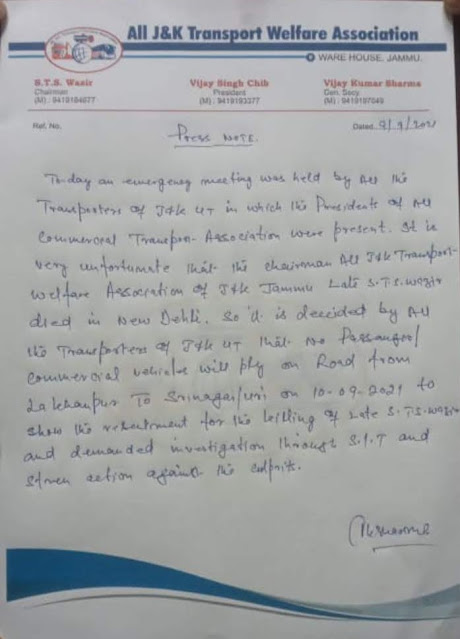 All J&K Transport Welfare Association
WARE HOUSE, JAMMU.
S.T.S. Wazir
Chairman
(M) : 9419184677
Vijay Singh Chib
President
(M) : 9419193377
Vijay Kumar Sharma
Gen. Secy
(M) : 9419187049
Ref. No.
Dated 9/9/2021
Press Note.
Today an emergency meeting was held by All the
Transporters of J&K UT in which the Presidents of All
Commercial Transpor- Association were present. It is
very unfortunate that the chairman All J&K Transport-
welfare Association of J&K Jammu Late S.T.S. Wazir
died in New Dehli. So it is decided by All
the Transporters of J&K UT that No Passanger/
Commercial vehicles will ply on Road from
Lakhanpur To Srinagar/ on 10-09-2021 to
show the for the killing of Late S.T.S. Wazir
and demanded investigation through S.I.T and
action against the culprits.